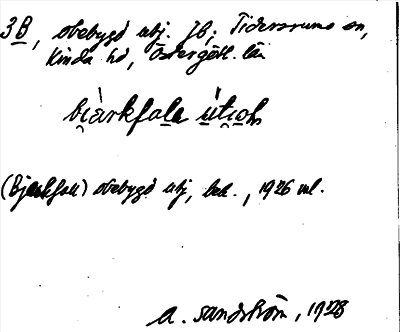 3B, obebygd utj. Jb; Tidersrums sn,
Kinda hd, Östergötl. län
bi̯àrkfala ùti̯oh
(Bjerkfall) obebygd utj, bek., 1926 ml.
A. Sandström, 1928